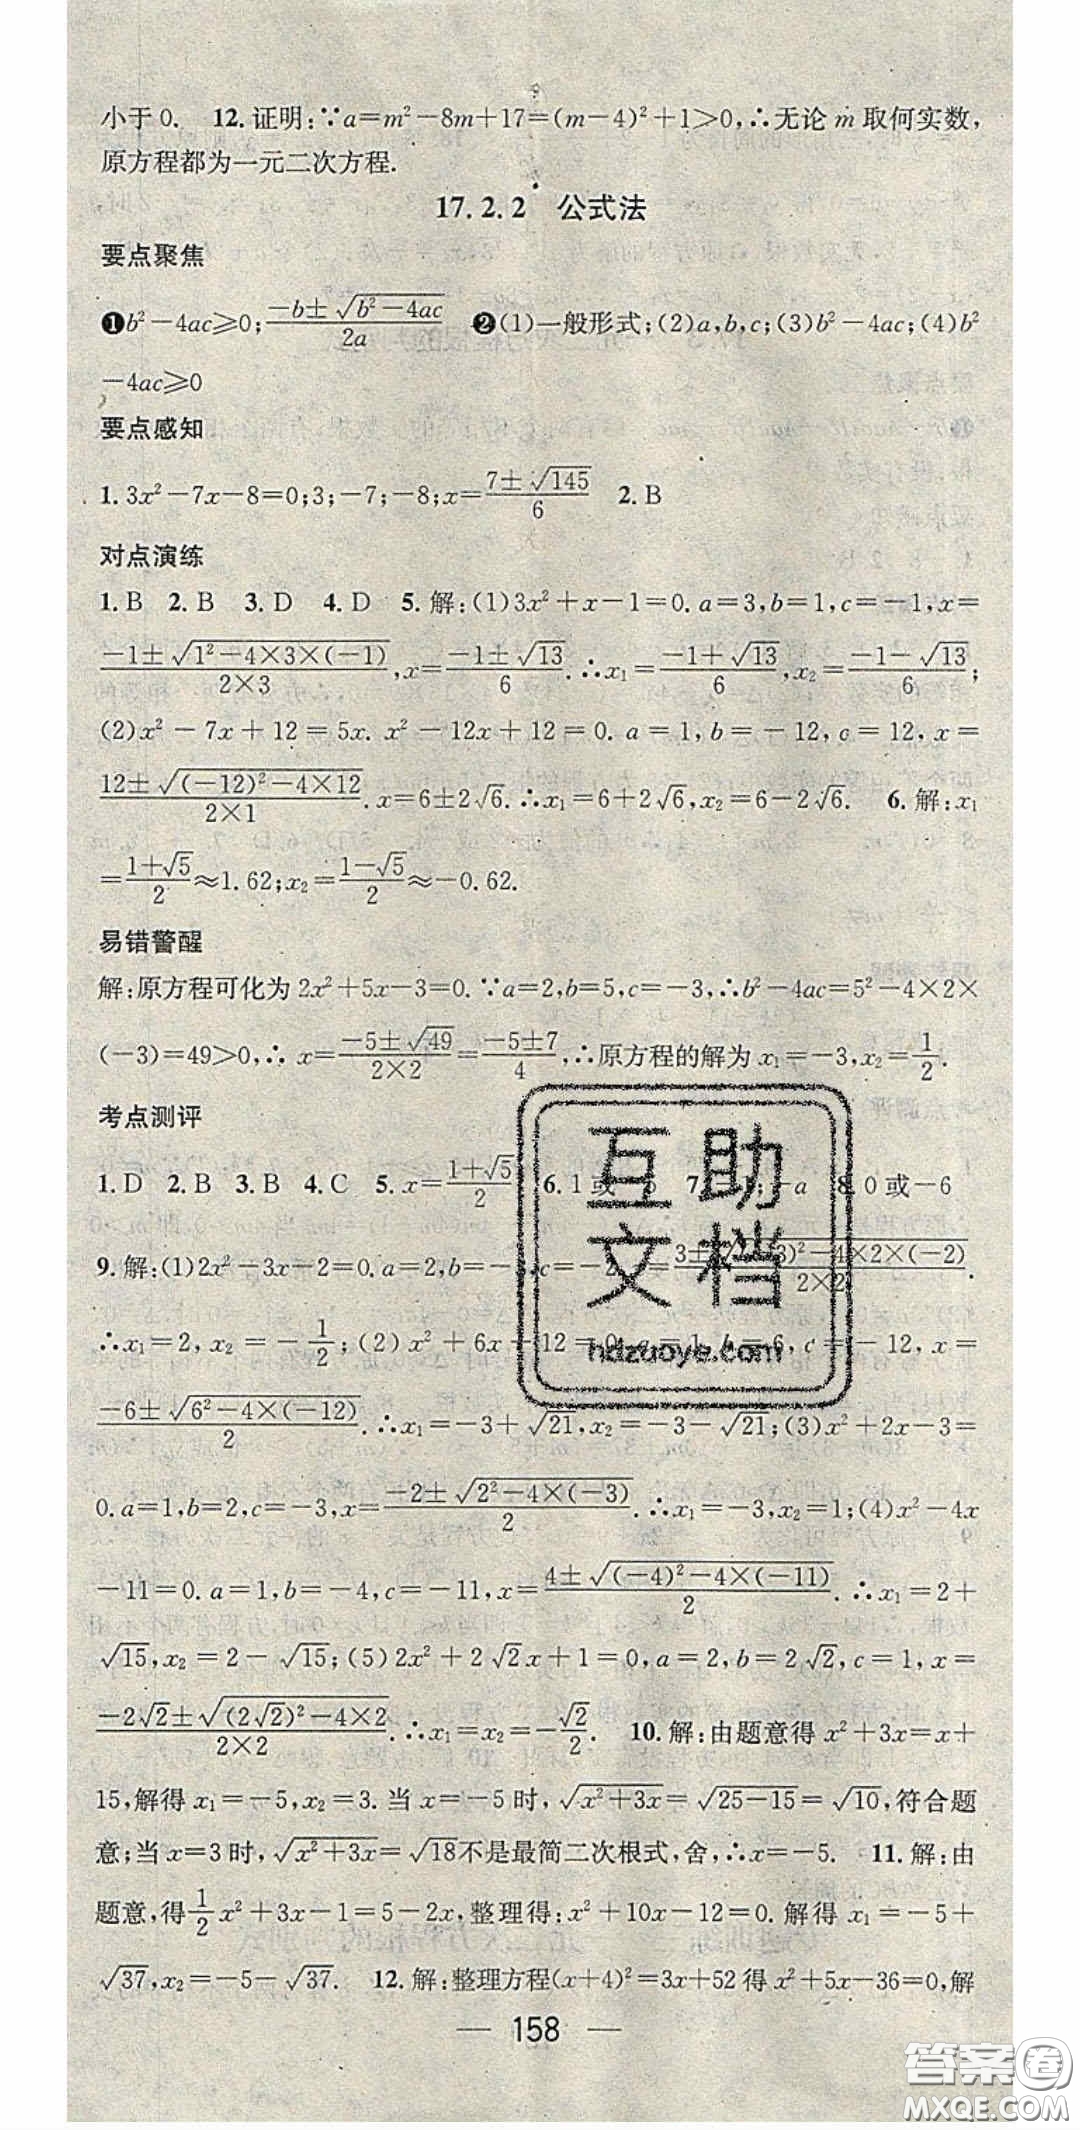 小于0. 12.证明:∵a=m²-8m+17=(m-4)²+1>0,∴无论m取何实数,
原方程都为一元二次方程.
17.2.2 公式法
要点聚焦
❶b²-4ac≥0;(-b±√(b²-4ac))/(2a) ❷(1)一般形式;(2)a,b,c;(3)b²-4ac;(4)b²
-4ac≥0
要点感知
1.3x²-7x-8=0;3;-7;-8;x=(7±√145)/6 2.B
对点演练
1.B 2.B 3.D 4.D 5.解:(1)3x²+x-1=0.a=3,b=1,c=-1,x=
(-1±√(1²-4×3×(-1)))/(2×3),x=(-1±√13)/6.∴x₁=(-1+√13)/6,x₂=(-1-√13)/6;
(2)x²-7x+12=5x. x²-12x+12=0. a=1,b=-12,c=12,x=
(12±√((-12)²-4×12))/(2×1).x=6±2√6.∴x₁=6+2√6,x₂=6-2√6. 6.解:x₁
=(1+√5)/2≈1.62;x₂=(1-√5)/2≈-0.62.
易错警醒
解:原方程可化为2x²+5x-3=0.∵a=2,b=5,c=-3,∴b²-4ac=5²-4×2×
(-3)=49>0,∴x=(-5±√49)/(2×2)=(-5±7)/4,∴原方程的解为x₁=-3,x₂=1/2.
考点测评
1.D 2.B 3.B 4.C 5.x=(1+√5)/2 6.1或 7. ;-a 8.0或-6
9.解:(1)2x²-3x-2=0.a=2,b=-3,c=-2, =(3±√( 3)²-4×2×(-2))/(2×2).
∴x₁=2,x₂=-1/2;(2)x²+6x-12=0.a=1,b=6,c=-12,x=
(-6±√(6²-4×(-12)))/2.∴x₁=-3+√21,x₂=-3-√21;(3)x²+2x-3=
0.a=1,b=2,c=-3,x=(-2±√(2²-4×(-3)))/2.∴x₁=-3,x₂=1;(4)x²-4x
-11=0.a=1,b=-4,c=-11,x=(4±√((-4)²-4×(-11)))/2.∴x₁=2+
√15,x₂=2-√15;(5)2x²+2√2x+1=0,a=2,b=2√2,c=1,x=
(-2√2±√((2√2)²-4×2))/(2×2).∴x₁=x₂=-√2/2. 10.解:由题意得x²+3x=x+
15,解得x₁=-5,x₂=3.当x=-5时,√(x²+3x)=√(25-15)=√10,符合题
意;当x=3时,√(x²+3x)=√18不是最简二次根式,舍,∴x=-5. 11.解:由
题意,得1/2x²+3x-1=5-2x,整理得:x²+10x-12=0.解得x₁=-5+
√37,x₂=-5-√37. 12.解:整理方程(x+4)²=3x+52得x²+5x-36=0,解
— 158 —
互助
文档
hdzuoye.com
答案圈
MXQE.COM